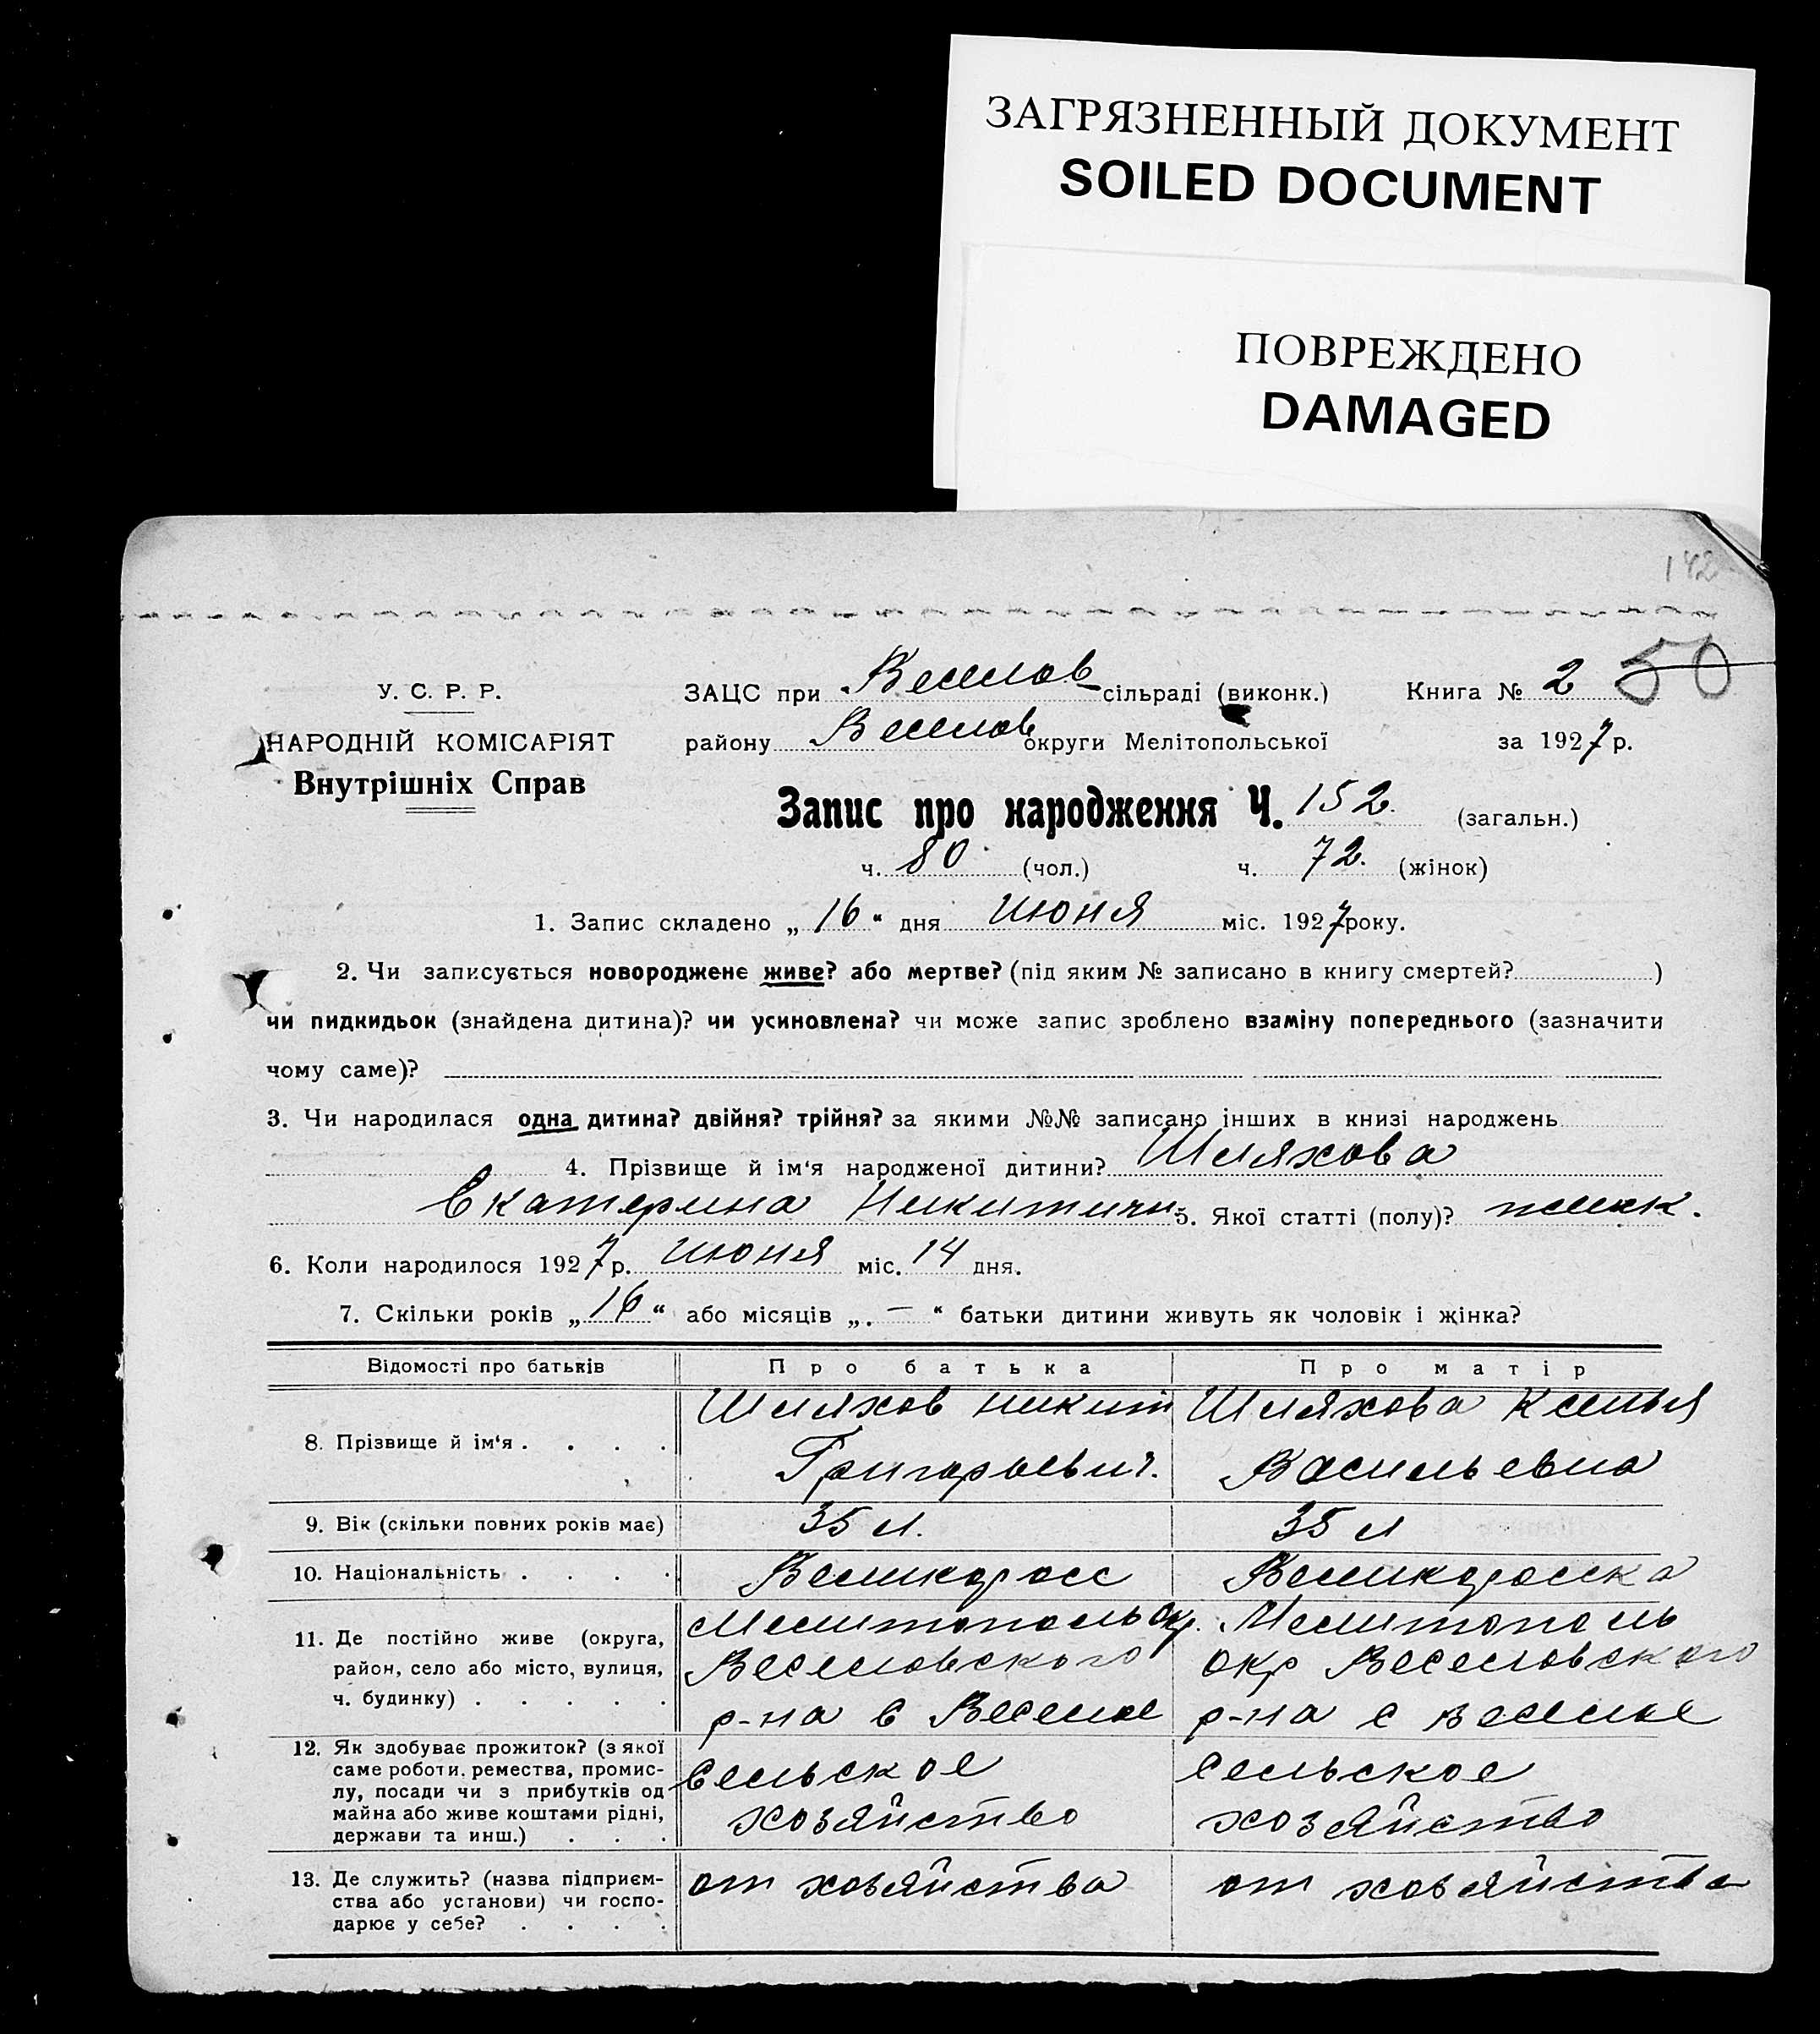 ЗАГРЯЗНЕННЫЙ ДОКУМЕНТ
SOILED DOCUMENT
ПОВРЕЖДЕНО
DAMAGED
142
У. С. Р. Р.
НАРОДНІЙ КОМІСАРІЯТ
Внутрішніх Справ
ЗАЦС при Веселов сільраді (виконк.) Книга № 2 50
району Веселов округи Мелітопольської за 1927 р.
Запис про народження Ч. 152. (загальн.)
ч. 80 (чол.) ч. 72. (жінок)
1. Запис складено „16“ дня июня міс. 1927 року.
2. Чи записується новороджене живе? або мертве? (під яким № записано в книгу смертей? )
чи пидкидьок (знайдена дитина)? чи усиновлена? чи може запис зроблено взаміну попереднього (зазначити
чому саме)?
3. Чи народилася одна дитина? двійня? трійня? за якими №№ записано інших в книзі народжень
4. Прізвище й ім‘я народженої дитини? Шляхова
Екатерина Никитичн 5. Якої статті (полу)? женск.
6. Коли народилося 1927 р. июня міс. 14 дня.
7. Скільки років „16“ або місяців „. — “ батьки дитини живуть як чоловік і жінка?
Відомості про батьків Про батька Про матір
8. Прізвище й ім‘я . . . . Шляхов Никит Шляхова Ксенья
Григорьевич. Васильевна
9. Вік (скільки повних років має) 35 л. 35 л
10. Національність . . . . Великоросс Великоросска
11. Де постійно живе (округа, Мелитополь окр. Мелитополь
район, село або місто, вулиця, Веселовского окр Веселовского
ч. будинку) . . . . . р-на с Веселое р-на с Веселое
12. Як здобуває прожиток? (з якої
саме роботи, ремества, промис- Сельское Сельское
лу, посади чи з прибутків од
майна або живе коштами рідні, хозяйство хозяйство
держави та инш.) . . .
13. Де служить? (назва підприєм- от хозяйства от хозяйства
ства або установи) чи госпо-
дарює у себе? . . . .